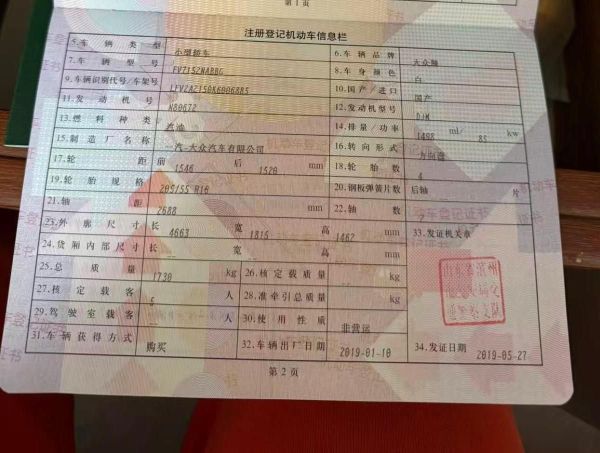 第1页
注册登记机动车信息栏
5.车辆类型 小型轿车 6.车辆品牌 大众牌
7.车辆型号 FV7152NABBG 8.车身颜色 白
9.车辆识别代号/车架号 LFV2A2150K6006885 10.国产/进口 国产
11.发动机号 N89672 12.发动机型号 DJM
13.燃料种类 汽油 14.排量/功率 1498 ml/ 85 kw
15.制造厂名称 一汽-大众汽车有限公司 16.转向形式 方向盘
17.轮距 前 1546 后 1520 mm 18.轮胎数 4
19.轮胎规格 205/55 R16 20.钢板弹簧片数 后轴 片
21.轴距 2688 mm 22.轴数 2
23.外廓尺寸 长 4663 宽 1815 高 1462 mm 33.发证机关章
24.货厢内部尺寸 长 宽 高 mm
25.总质量 1730 kg 26.核定载质量 kg
27.核定载客 5 人 28.准牵引总质量 kg
29.驾驶室载客 人 30.使用性质 非营运
31.车辆获得方式 购买 32.车辆出厂日期 2019-01-10 34.发证日期 2019-05-27
第2页